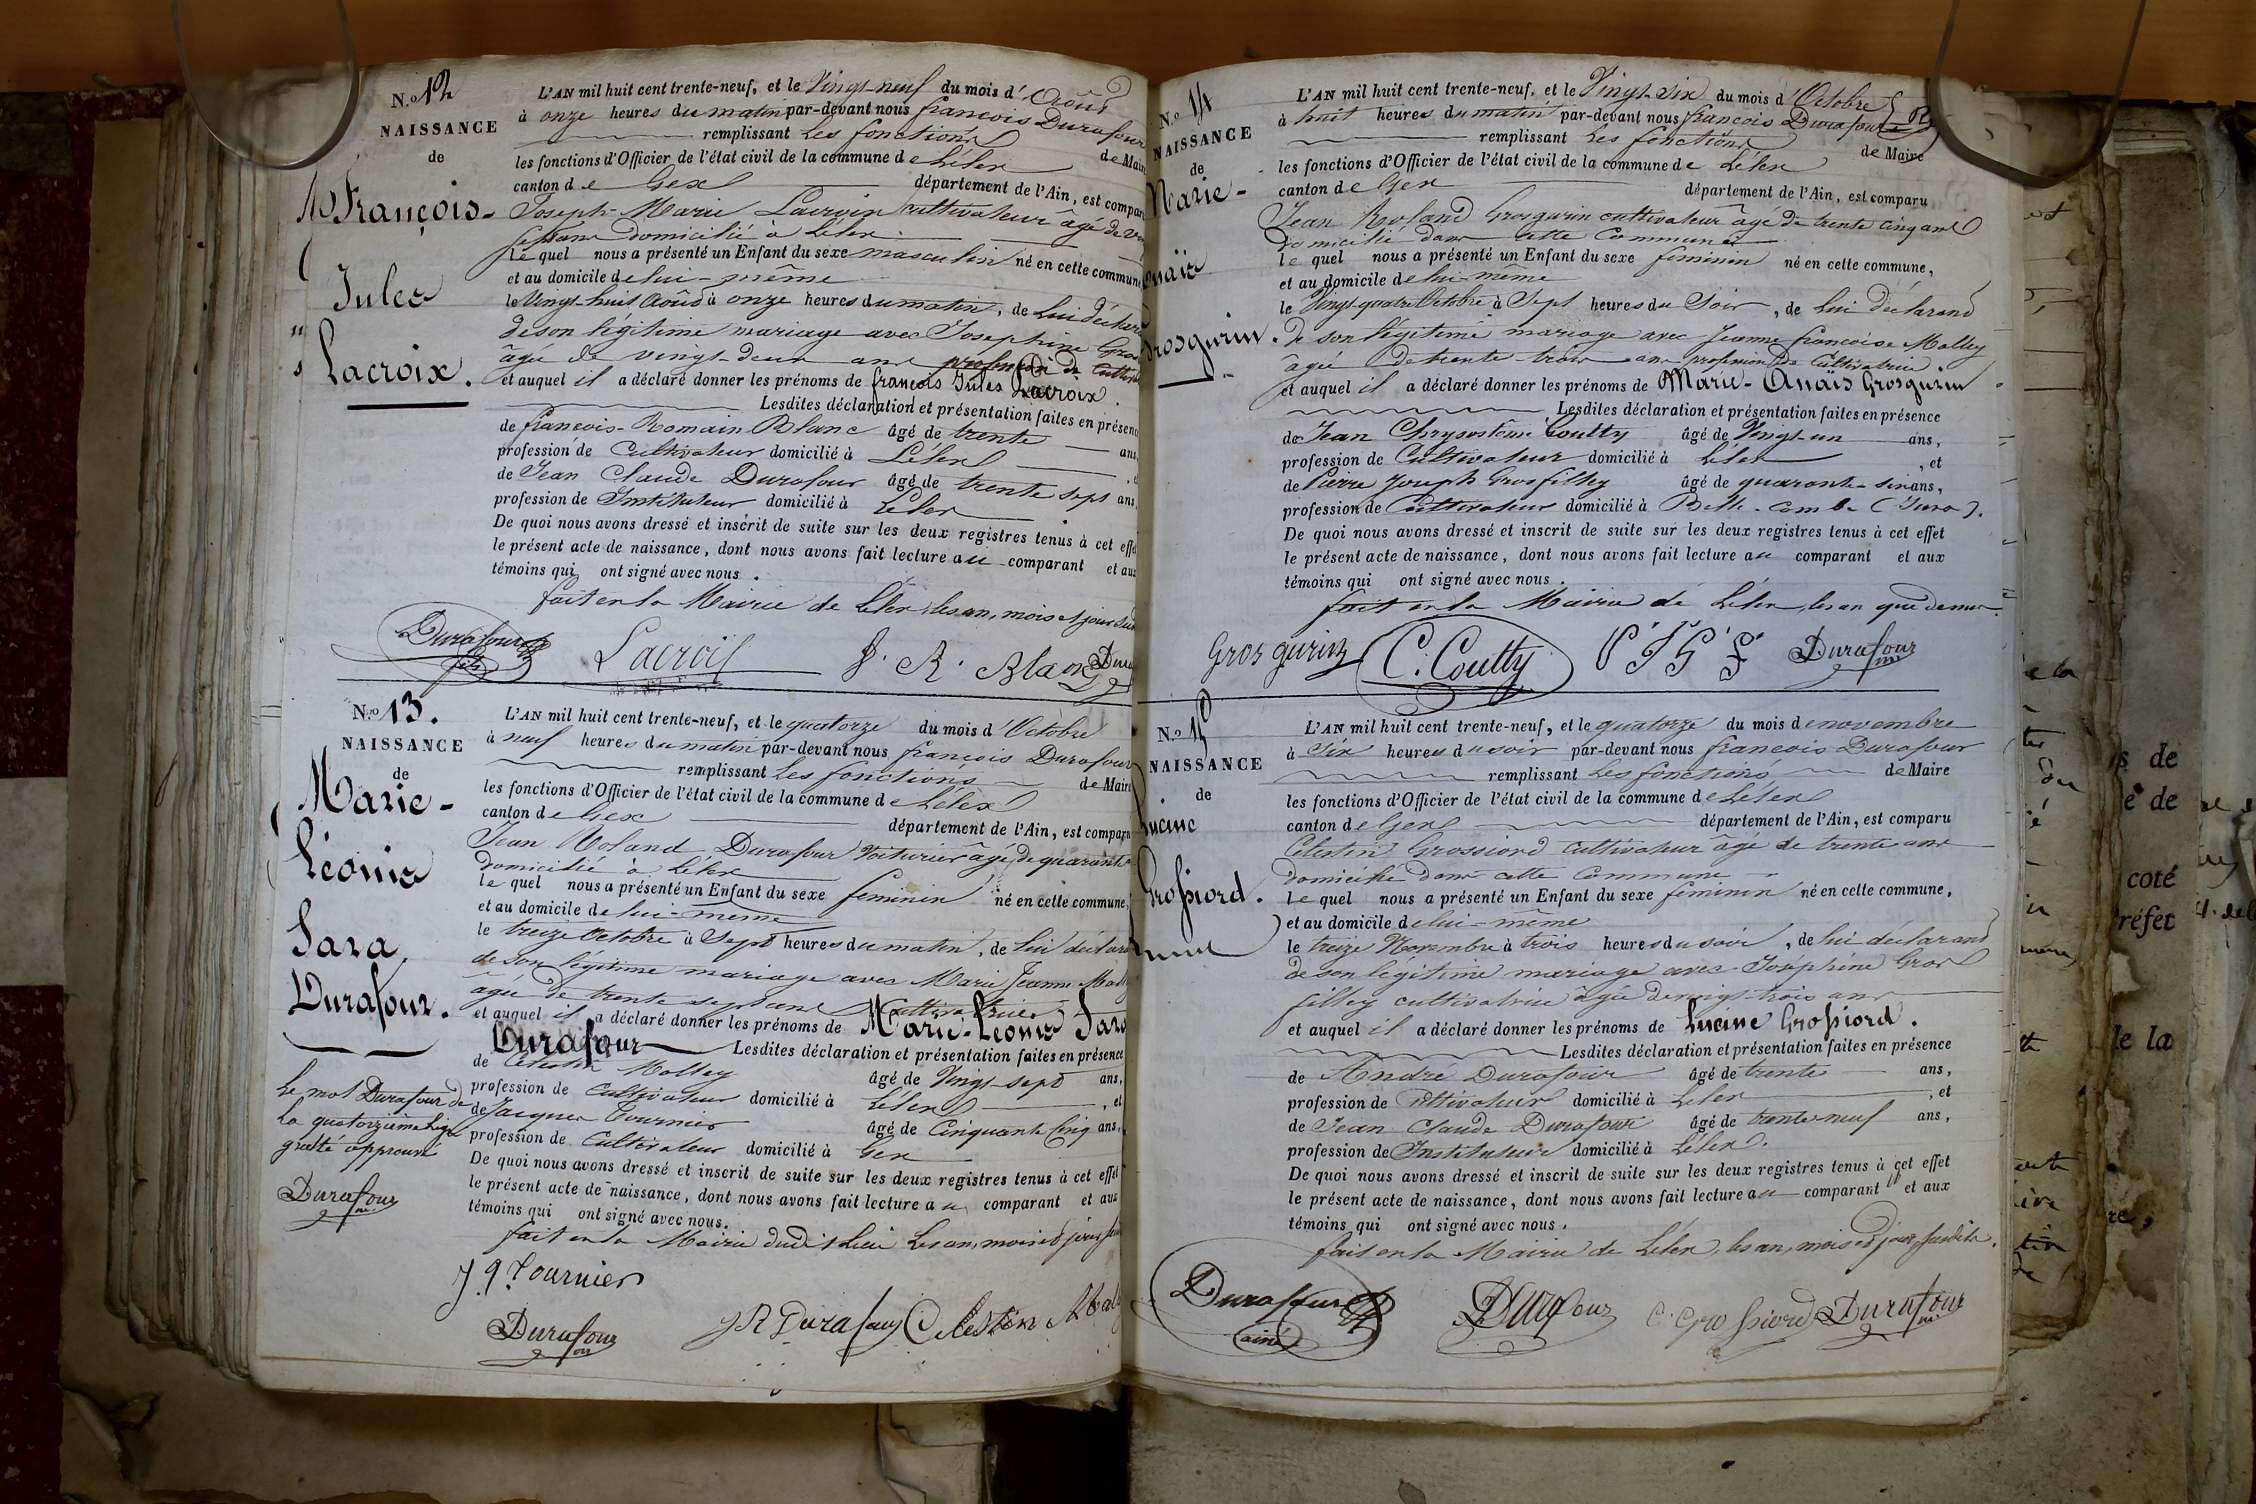 N.º 12
NAISSANCE
de
François-
Jules
Lacroix.
L'AN mil huit cent trente-neuf, et le Vingt-neuf du mois d'Août
à onze heures du matin par-devant nous françois Durafour
remplissant Les fonctions de Maire
les fonctions d'Officier de l'état civil de la commune de Lélex
canton de Gex département de l'Ain, est comparu
Joseph-Marie Lacroix cultivateur âgé de
sept ans domicilié à Lélex
le quel nous a présenté un Enfant du sexe masculin né en cette commune
et au domicile de lui-même
le Vingt-huit Août à onze heures du matin, de Lui déclarant
de son légitime mariage avec Josephine Gros
âgée de vingt-deux ans profession de Cultiv
et auquel il a déclaré donner les prénoms de françois Jules Lacroix.
Lesdites déclaration et présentation faites en présence
de françois-Romain Blanc âgé de trente ans,
profession de Cultivateur domicilié à Lélex
de Jean Claude Durafour âgé de trente sept ans,
profession de Instituteur domicilié à Lélex
De quoi nous avons dressé et inscrit de suite sur les deux registres tenus à cet effet
le présent acte de naissance, dont nous avons fait lecture au comparant et aux
témoins qui ont signé avec nous.
fait en la Mairie de Lélex, les an, mois et jour
Durafour fils Lacroix f. R. Blanc
N.º 13.
NAISSANCE
de
Marie-
Léonie
Sara
Durafour.
L'AN mil huit cent trente-neuf, et le quatorze du mois d'Octobre
à neuf heures du matin par-devant nous françois Durafour
remplissant Les fonctions de Maire
les fonctions d'Officier de l'état civil de la commune de Lélex
canton de Gex département de l'Ain, est comparu
Jean Roland Durafour Voiturier âgé de quarante
domicilié à Lélex
le quel nous a présenté un Enfant du sexe feminin né en cette commune,
et au domicile de lui-même
le treize Octobre à Sept heures du matin, de lui déclarant
de son légitime mariage avec Marie Jeanne
âgée de trente sept ans Cultivatrice
et auquel il a déclaré donner les prénoms de Marie-Léonie Sara
Durafour Lesdites déclaration et présentation faites en présence
de Célestin Molley âgé de Vingt-sept ans,
profession de Cultivateur domicilié à Lélex, et
de Jacques Tournier âgé de Cinquante Cinq ans,
profession de Cultivateur domicilié à Gex
De quoi nous avons dressé et inscrit de suite sur les deux registres tenus à cet effet
le présent acte de naissance, dont nous avons fait lecture au comparant et aux
témoins qui ont signé avec nous.
fait en la Mairie dudit Lieu Les an, mois et jour
Le mot Durafour de
la quatorzième ligne
gratté approuvé
Durafour
J. J. Tournier
Durafour J R Durafour Celestin
N.º 14
NAISSANCE
de
Marie-
Anaïs
Grosgurin.
L'AN mil huit cent trente-neuf, et le Vingt-Six du mois d'Octobre
à huit heures du matin par-devant nous françois Durafour
remplissant Les fonctions de Maire
les fonctions d'Officier de l'état civil de la commune de Lélex
canton de Gex département de l'Ain, est comparu
Jean Roland Grosgurin cultivateur âgé de trente cinq ans
domicilié dans cette Commune
le quel nous a présenté un Enfant du sexe feminin né en cette commune,
et au domicile de lui-même
le Vingt-quatre Octobre à Sept heures du Soir, de Lui déclarant
de son légitime mariage avec Jeanne françoise Molley
âgée de trente-trois ans profession de Cultivatrice
et auquel il a déclaré donner les prénoms de Marie-Anaïs Grosgurin
Lesdites déclaration et présentation faites en présence
de Jean Chrysostôme Coutty âgé de Vingt-un ans,
profession de Cultivateur domicilié à Lélex, et
de Pierre Joseph Grosfilley âgé de quarante-six ans,
profession de Cultivateur domicilié à Belle-Combe (Jura).
De quoi nous avons dressé et inscrit de suite sur les deux registres tenus à cet effet
le présent acte de naissance, dont nous avons fait lecture au comparant et aux
témoins qui ont signé avec nous.
fait en la Mairie de Lélex, les an que dessus.
Gros gurin C. Coutty P J G F Durafour
N.º 15
NAISSANCE
de
Lucine
Grossiord.
L'AN mil huit cent trente-neuf, et le quatorze du mois de novembre
à Six heures du soir par-devant nous françois Durafour
remplissant Les fonctions de Maire
les fonctions d'Officier de l'état civil de la commune de Lélex
canton de Gex département de l'Ain, est comparu
Célestin Grossiord cultivateur âgé de trente ans
domicilié dans cette Commune
le quel nous a présenté un Enfant du sexe feminin né en cette commune,
et au domicile de lui-même
le treize Novembre à trois heures du soir, de lui déclarant
de son légitime mariage avec Joséphine Gros
filley cultivatrice âgée de vingt-trois ans
et auquel il a déclaré donner les prénoms de Lucine Grossiord.
Lesdites déclaration et présentation faites en présence
de André Durafour âgé de trente ans,
profession de Cultivateur domicilié à Lélex, et
de Jean Claude Durafour âgé de trente-neuf ans,
profession de Instituteur domicilié à Lélex.
De quoi nous avons dressé et inscrit de suite sur les deux registres tenus à cet effet
le présent acte de naissance, dont nous avons fait lecture au comparant et aux
témoins qui ont signé avec nous.
fait en la Mairie de Lélex, les an, mois et jour susdits.
Durafour ainé Durafour C. Grossiord Durafour